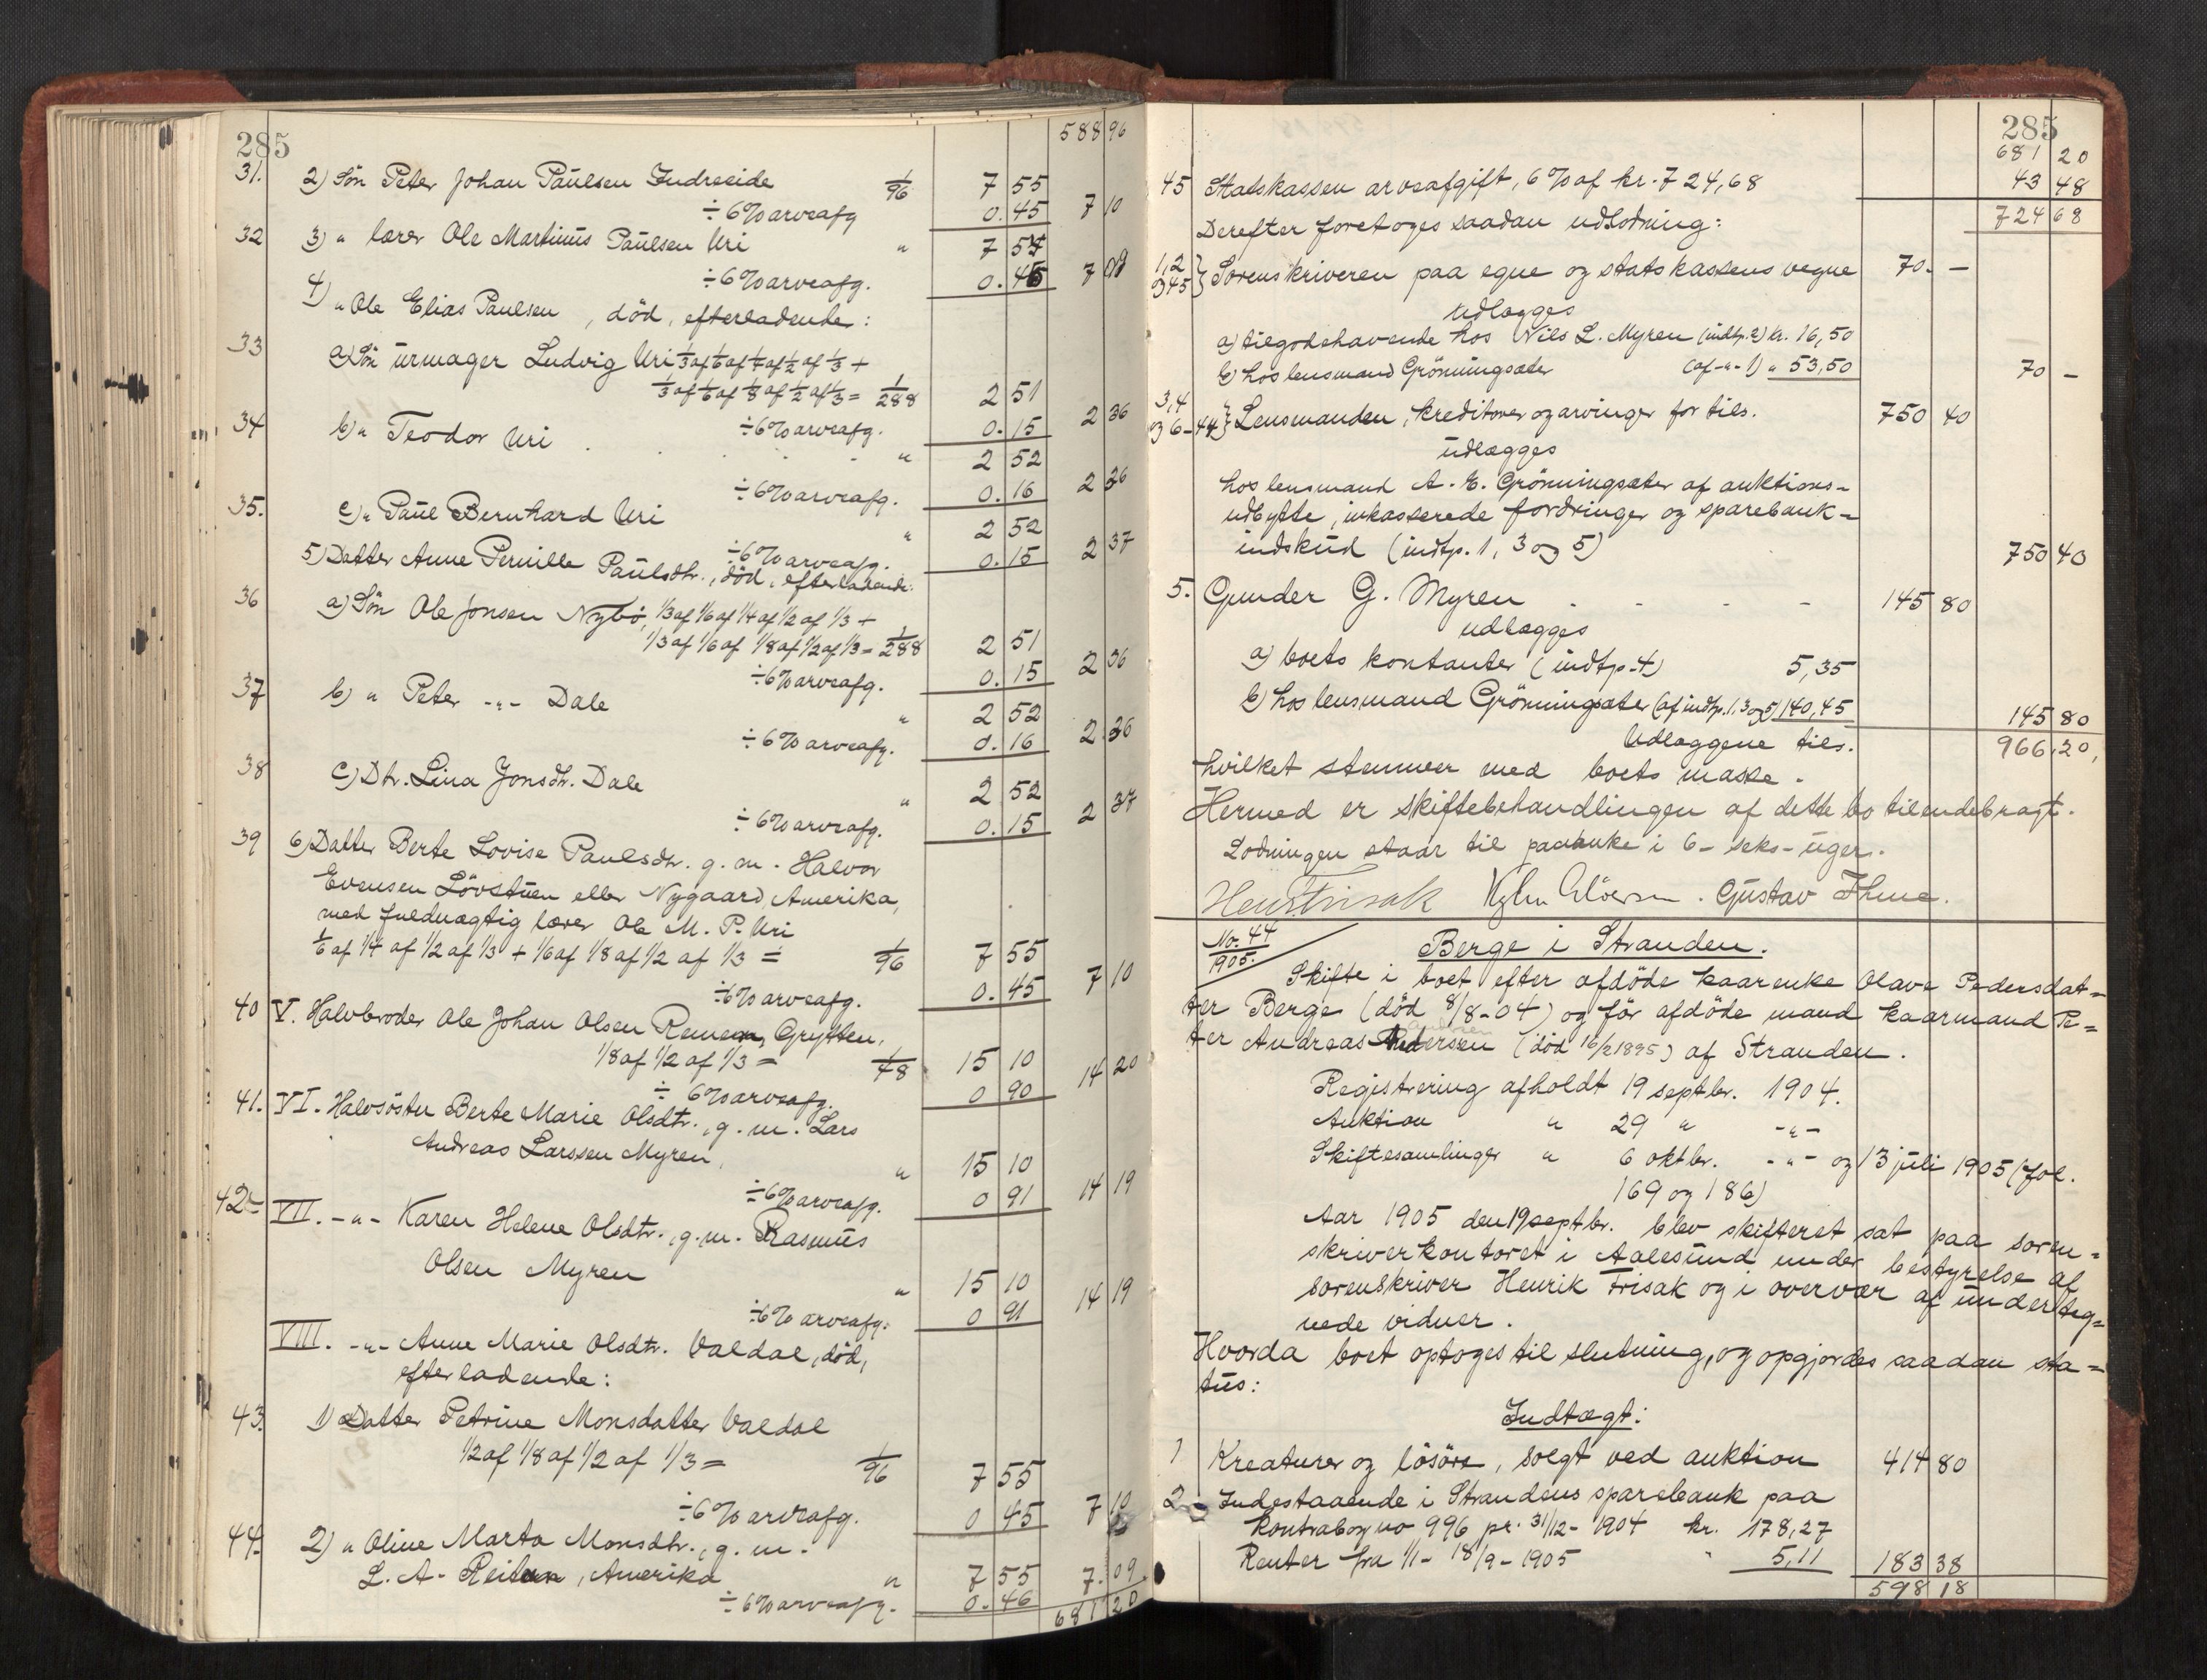 285
588 96
31. 2) Søn Peter Johan Paulsen Indreeide 1/96 7 55
÷ 6% arveafg 0.45 7 10
32 3) " lærer Ole Martinus Paulsen Uri " 7 54
÷ 6% arveafg. 0.46 7 08
4) " Ole Elias Paulsen, død, efterladende:
33 a) Søn urmager Ludvig Uri 1/3 af 1/6 af 1/4 af 1/2 af 1/3 +
1/3 af 1/6 af 1/8 af 1/2 af 1/3 = 1/288 2 51
÷ 6% arveafg. 0.15 2 36
34 b) " Teodor Uri . . . . " 2 52
÷ 6% arveafg. 0.16 2 36
35. c) " Paul Bernhard Uri " 2 52
÷ 6% arveafg. 0.15 2 37
5) Datter Anne Pernille Paulsdtr., død, efterladende:
36 a) Søn Ole Jonsen Nybø, 1/3 af 1/6 af 1/4 af 1/2 af 1/3 +
1/3 af 1/6 af 1/8 af 1/2 af 1/3 = 1/288 2 51
÷ 6% arveafg. 0.15 2 36
37 b) " Peter -"- Dale " 2 52
÷ 6% arveafg. 0.16 2 36
38 c) Dtr. Lina Jonsdtr. Dale " 2 52
÷ 6% arveafg. 0.15 2 37
39 6) Datter Berte Lovise Paulsdtr. g. m. Halvor
Evensen Løvstuen eller Nygaard, Amerika,
med fuldmægtig lærer Ole M. P. Uri
1/6 af 1/4 af 1/2 af 1/3 + 1/6 af 1/8 af 1/2 af 1/3 = 1/96 7 55
÷ 6% arveafg. 0.45 7 10
40 V. Halvbroder Ole Johan Olsen Remem, Grytten,
1/8 af 1/2 af 1/3 = 1/48 15 10
÷ 6% arveafg. 0 90 14 20
41. VI. Halvsøster Berte Marie Olsdtr., g. m. Lars
Andreas Larssen Myren, " 15 10
÷ 6% arveafg. 0 91 14 19
42 VII. -"- Karen Helene Olsdtr., g. m. Rasmus
Olsen Myren " 15 10
÷ 6% arveafg. 0 91 14 19
VIII. -"- Anne Marie Olsdtr. Valdal, død,
efterladende:
43. 1) Datter Petrine Monsdatter Valdal
1/2 af 1/8 af 1/2 af 1/3 = 1/96 7 55
÷ 6% arveafg. 0 45 7 10
44. 2) " Oline Marta Monsdtr., g. m.
L. A. Reiten, Amerika " 7 55 7.09
÷ 6% arveafg. 0.46
681 20
285
681 20
45 Statskassen arveafgift, 6% af kr. 724,68 43 48
724 68
Derefter foretoges saadan udlodning:
1, 2 og 45 } Sorenskriveren paa egne og statskassens vegne 70. -
udlægges
a) tilgodehavende hos Nils L. Myren (indtp. 2) kr. 16,50
b) hos lensmand Grønningsæter (af -"- 1) " 53,50 70 -
3, 4 og 6-44 } Lensmanden, kreditorer og arvinger for tils. 750 40
udlægges
hos lensmand A. E. Grønningsæter af auktions-
udbytte, inkasserede fordringer og sparebank-
indskud (indtp. 1, 3 og 5) 750 40
5. Gunder G. Myren . - - - 145 80
udlægges
a) boets kontanter (indtp. 4) 5,35
b) hos lensmand Grønningsæter (af indtp. 1, 3 og 5) 140,45 145 80
Udlæggene tils. 966,20,
hvilket stemmer med boets masse.
Hermed er skiftebehandlingen af dette bo tilendebragt.
Lodningen staar til paaanke i 6 - seks - uger.
Henr Frisak . Gustav Thue.
No. 44
1905.
Berge i Stranden.
Skifte i boet efter afdøde kaarenke Olave Pedersdat-
ter Berge (død 8/8-04) og før afdøde mand kaarmand Pe-
ter Andreas (død 16/2 1895) af Stranden.
Registrering afholdt 19 septbr. 1904.
Auktion " 29 " -"-
Skiftesamlinger " 6 oktbr. -"- og 13 juli 1905 (fol.
169 og 186)
Aar 1905 den 19 septbr. blev skifteret sat paa soren-
skriverkontoret i Aalesund under bestyrelse af
sorenskriver Henrik Frisak og i overvær af underteg-
nede vidner.
Hvorda boet optoges til slutning, og opgjordes saadan sta-
tus:
Indtægt:
1 Kreaturer og løsøre, solgt ved auktion 414 80
2 Indestaaende i Strandens sparebank paa
kontrabog no 996 pr. 31/12 - 1904 kr. 178,27
Renter fra 1/1 - 18/9 - 1905 " 5,11 183 38
598 18